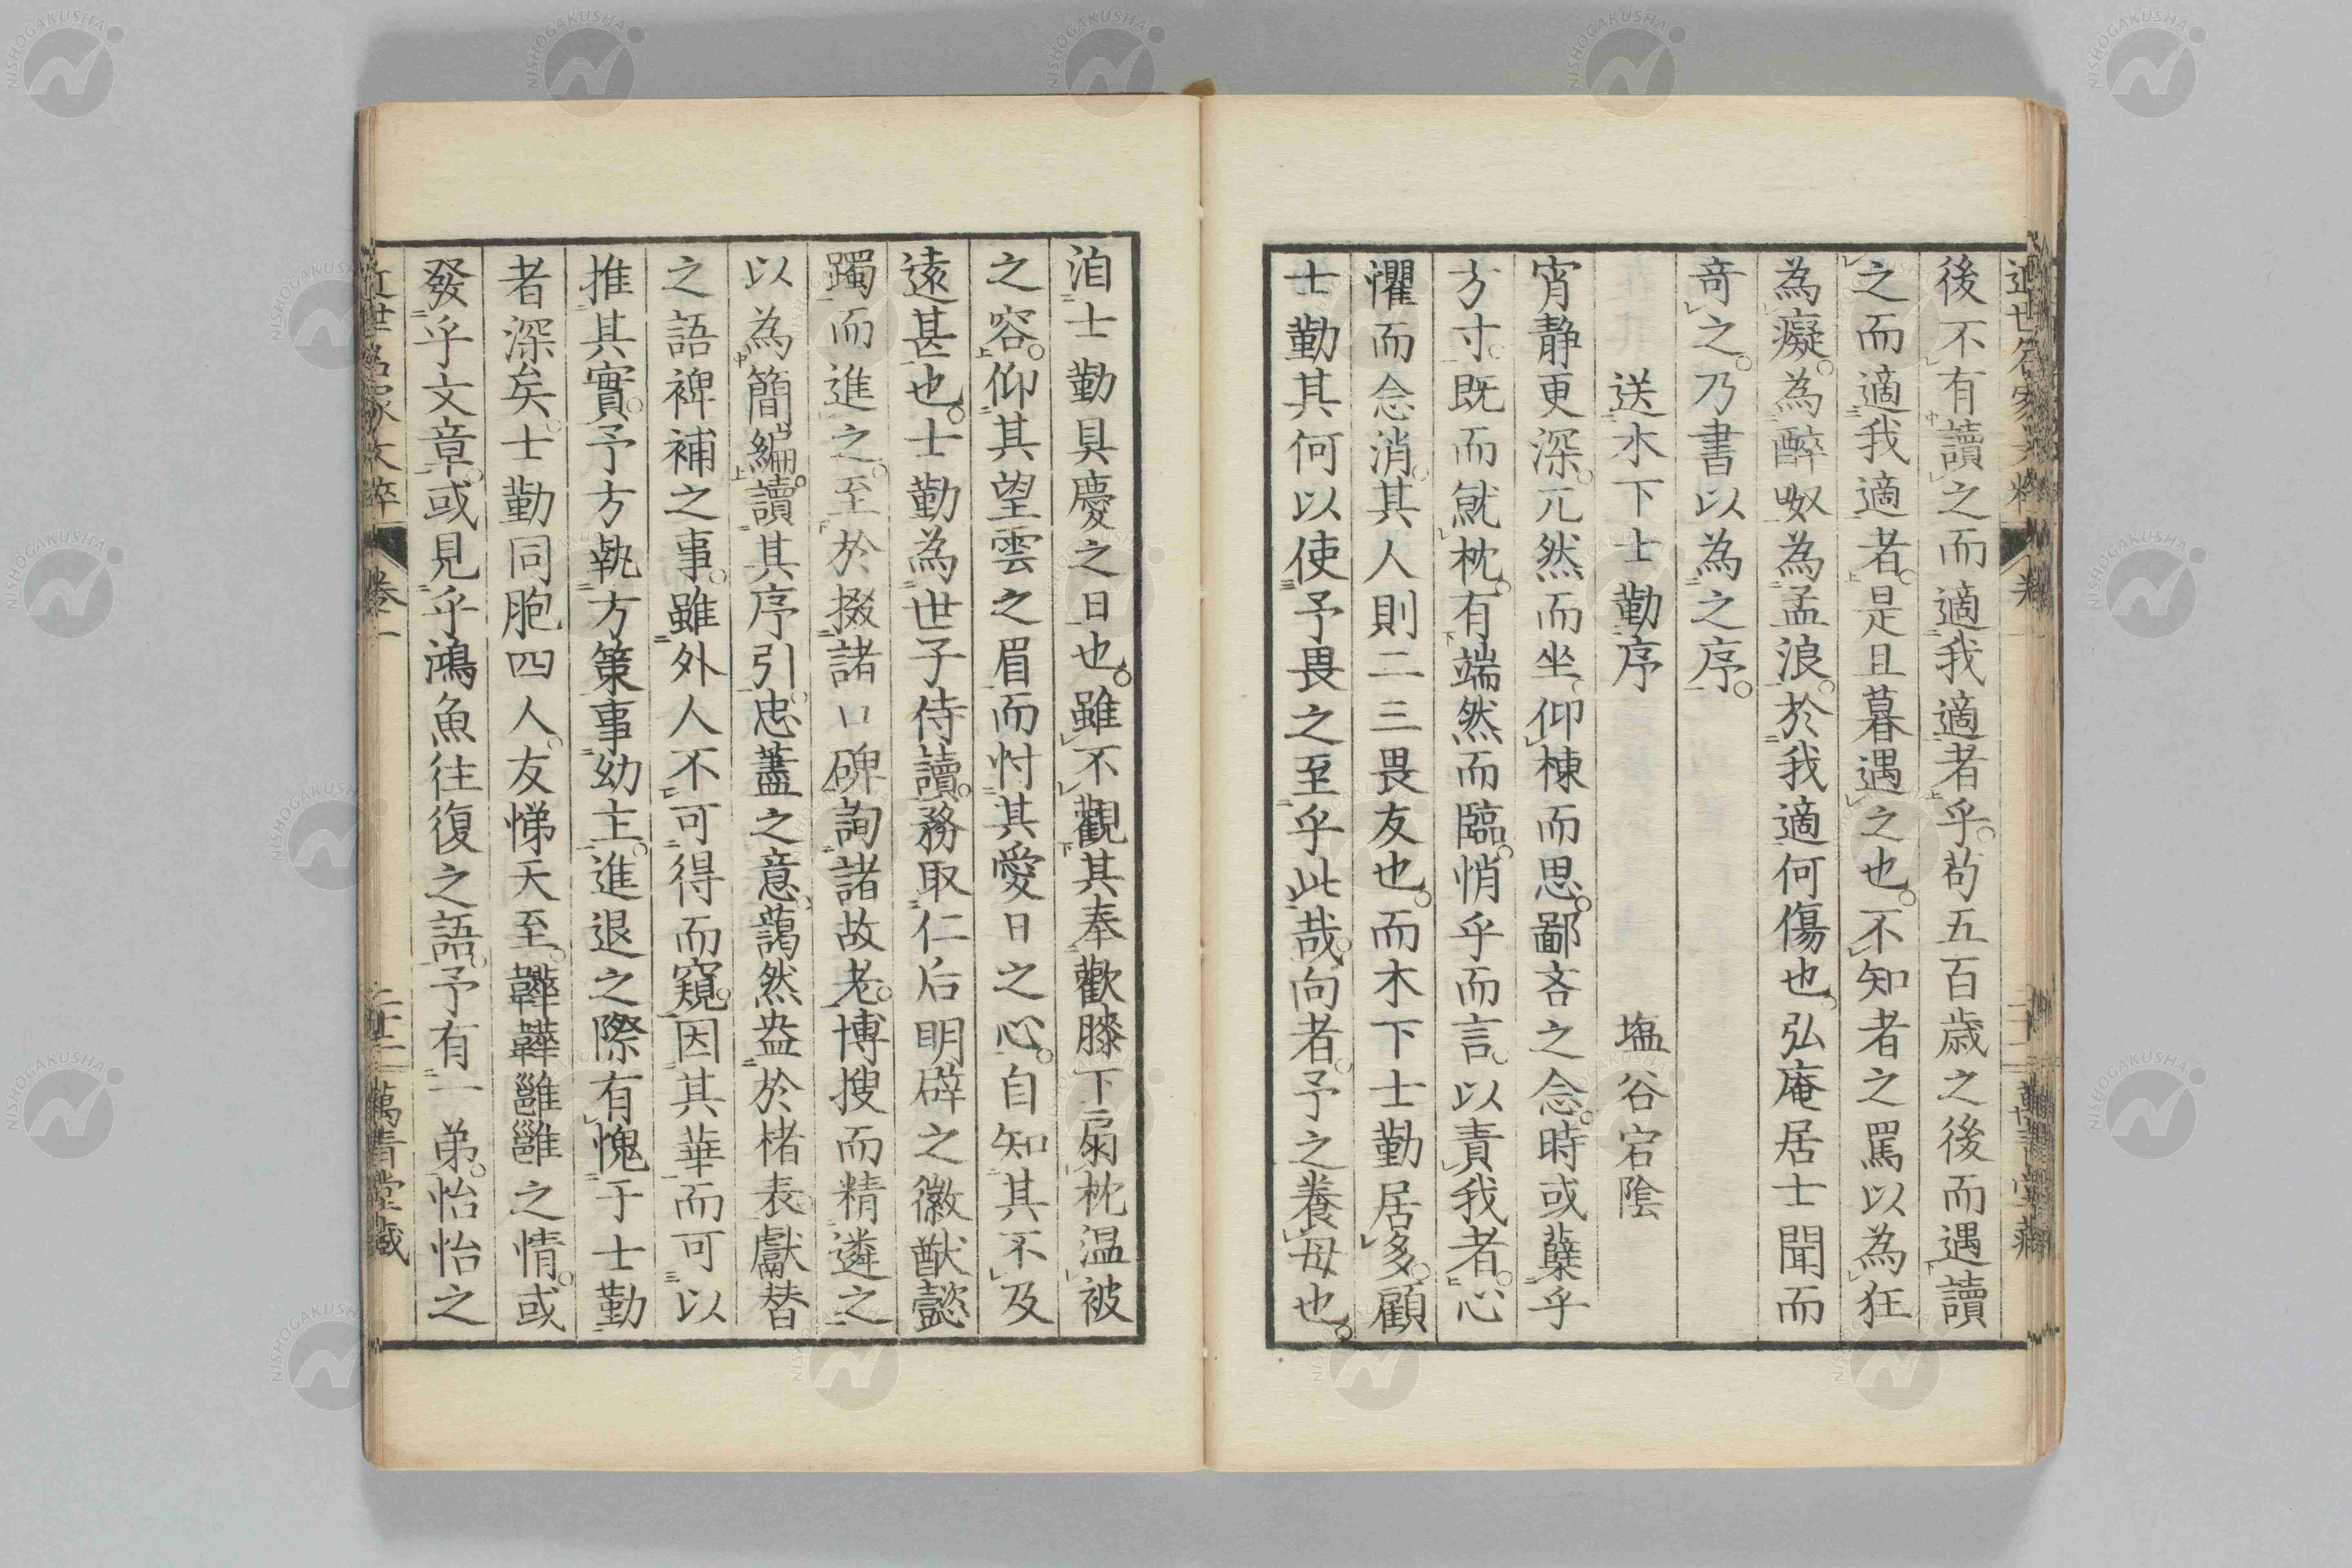 後不有讀之而適我適者乎。苟五百歲之後而遇讀
之而適我適者。是旦暮遇之也。不知者之罵以為狂
為癡。為醉呶為孟浪。於我適何傷也。弘庵居士聞而
奇之。乃書以為之序。
送木下士勤序 塩谷宕陰
宵静更深。兀然而坐。仰棟而思。鄙吝之念。時或蘖乎
方寸。既而就枕。有端然而臨。悄乎而言。以責我者。心
懼而念消。其人則二三畏友也。而木下士勤居多。顧
士勤其何以使予畏之至乎此哉。向者。予之養母也。
洎士勤具慶之日也。雖不觀其奉歡膝下扇枕温被
之容。仰其望雲之眉而忖其愛日之心。自知其不及
遠甚也。士勤為世子侍讀。務取仁后明辟之徽猷懿
躅而進之。至於掇諸口碑詢諸故老。博搜而精遴之
以為簡編。讀其序引。忠藎之意。藹然盎於楮表。獻替
之語裨補之事。雖外人不可得而窺。因其華而可以
推其實。予方執方策事幼主。進退之際有愧于士勤
者深矣。士勤同胞四人。友悌天至。韡韡雝雝之情。或
發乎文章。或見乎鴻魚往復之語。予有一弟。怡怡之
近世名家文粹 卷一 二十二 萬青堂藏
NISHOGAKUSHA